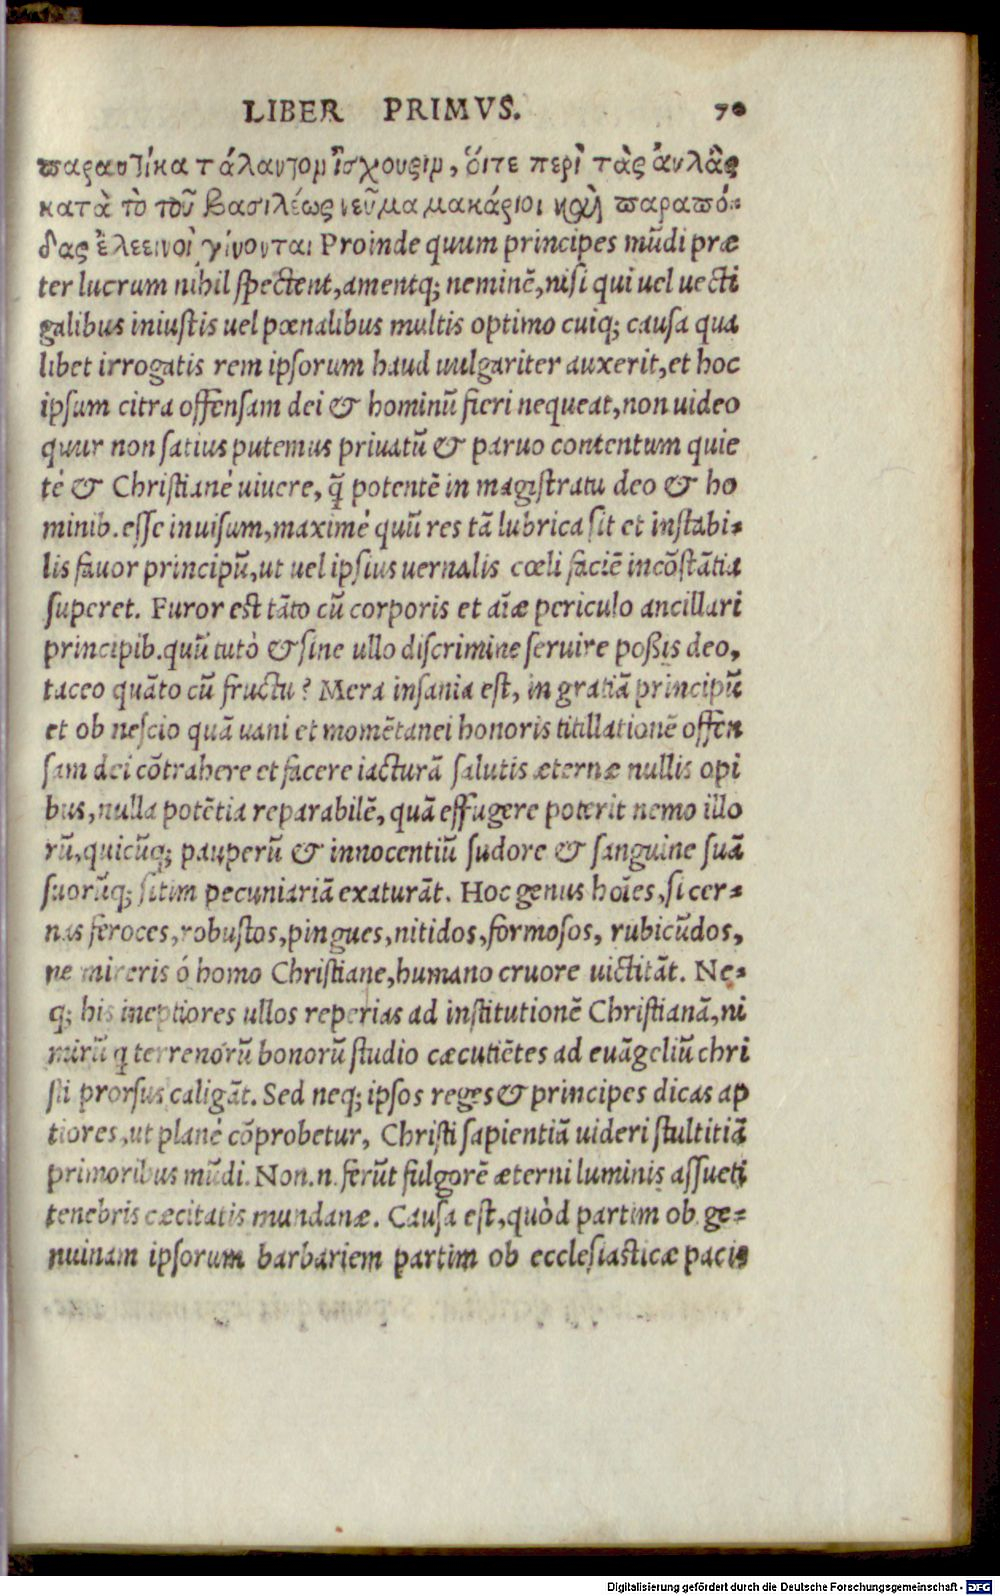 LIBER PRIMVS. 70
παραυτίκα τάλαντον ἴσχουσιν, ὅιτε περὶ τὰς ἀυλὰς
κατὰ τὸ τοῦ βασιλέως νεῦμα μακάριοι καὶ παραπό-
δας ἐλεεινοὶ γίνονται Proinde quum principes mūdi præ
ter lucrum nihil spectent, amentq; neminē, nisi qui uel uecti
galibus iniustis uel pœnalibus multis optimo cuiq; causa qua
libet irrogatis rem ipsorum haud uulgariter auxerit, et hoc
ipsum citra offensam dei & hominū fieri nequeat, non uideo
quur non satius putemus priuatū & paruo contentum quie
té & Christiané uiuere, q̄ potentē in magistratu deo & ho
minib. esse inuisum, maximé quū res tā lubrica sit et instabi-
lis fauor principū, ut uel ipsius uernalis cœli faciē incōstātia
superet. Furor est tāto cū corporis et aīæ periculo ancillari
principib. quū tutò & sine ullo discrimine seruire poßis deo,
taceo quāto cū fructu? Mera insania est, in gratiā principū
et ob nescio quā uani et momētanei honoris titillationē offen
sam dei cōtrahere et facere iacturā salutis æternæ nullis opi
bus, nulla potētia reparabilē, quā effugere poterit nemo illo
rū, quicūq; pauperū & innocentiū sudore & sanguine suā
suorūq; sitim pecuniariā exaturāt. Hoc genus hoīes, si cer-
nas feroces, robustos, pingues, nitidos, formosos, rubicūdos,
ne mireris ó homo Christiane, humano cruore uictitāt. Ne-
q; his ineptiores ullos reperias ad institutionē Christianā, ni
mirū q terrenorū bonorū studio cæcutiētes ad euāgeliū chri
sti prorsus caligāt. Sed neq; ipsos reges & principes dicas ap
tiores, ut plané cōprobetur, Christi sapientiā uideri stultitiā
primoribus mūdi. Non .n. ferūt fulgorē æterni luminis assueti
tenebris cæcitatis mundanæ. Causa est, quòd partim ob ge-
nuinam ipsorum barbariem partim ob ecclesiasticæ pacis
Digitalisierung gefördert durch die Deutsche Forschungsgemeinschaft - DFG